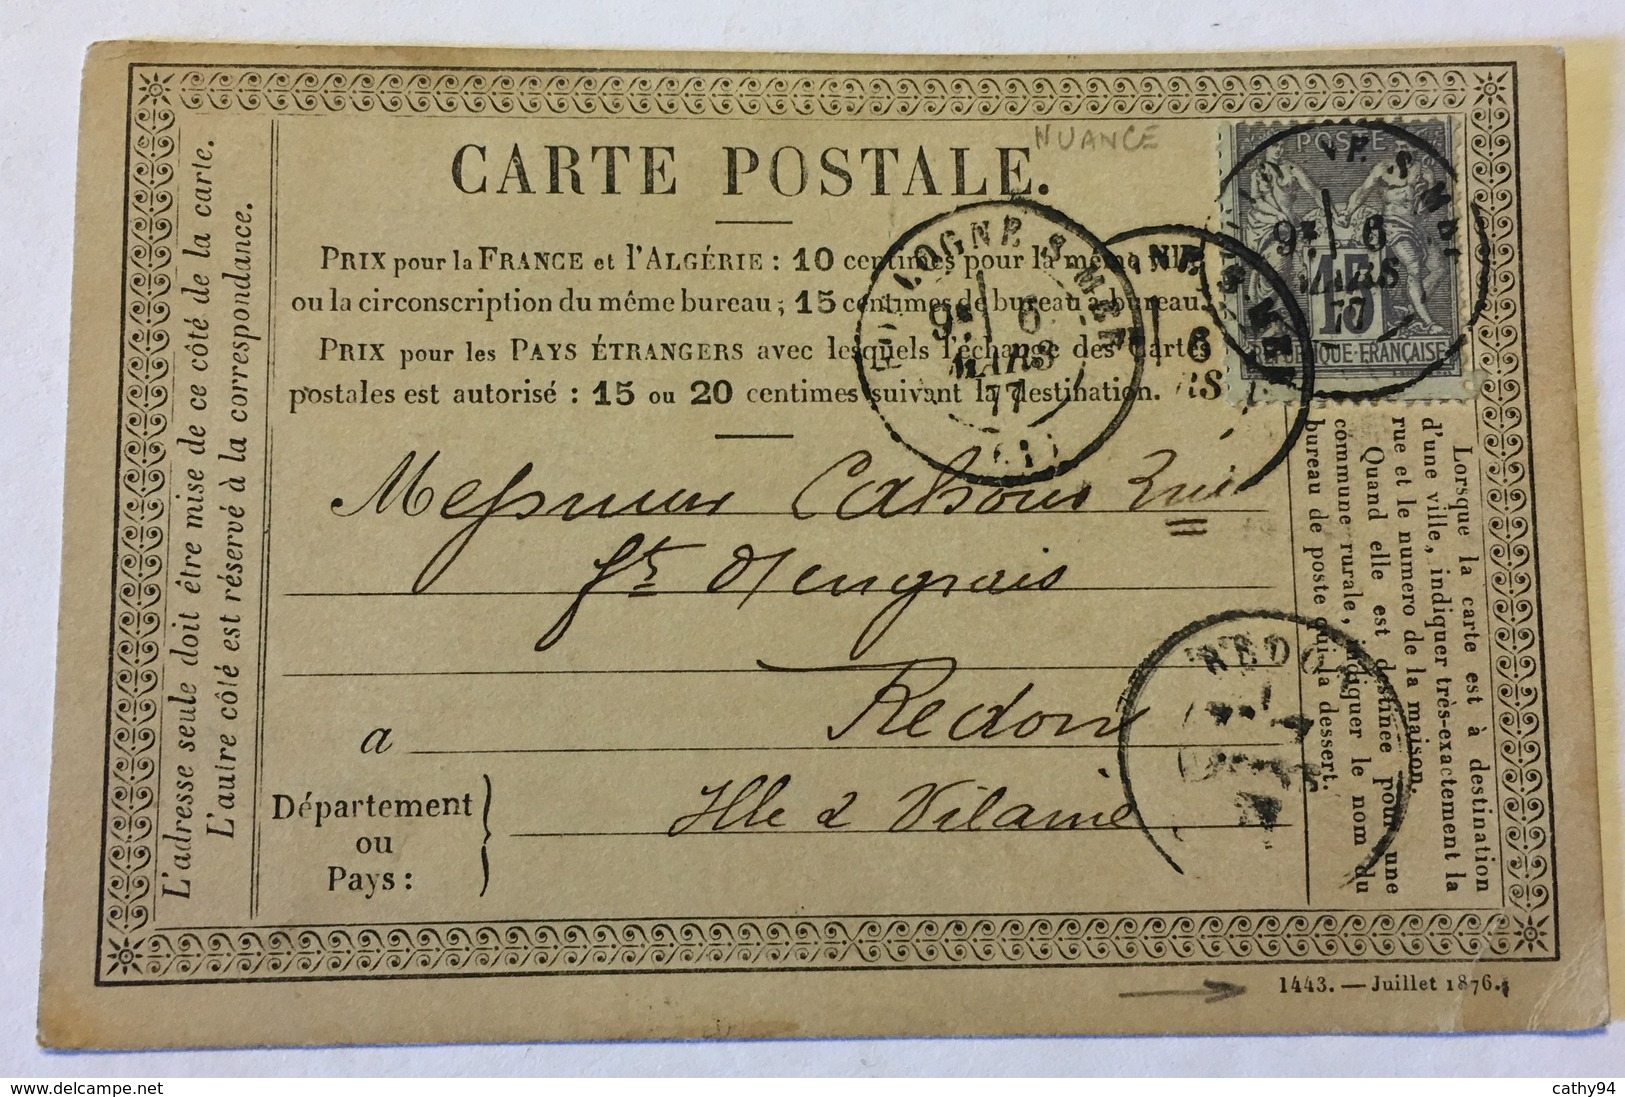 NUANCE
CARTE POSTALE.
PRIX pour la FRANCE et l'ALGÉRIE : 10 centimes pour la même ville
ou la circonscription du même bureau ; 15 centimes de bureau à bureau.
PRIX pour les PAYS ÉTRANGERS avec lesquels l'échange des Cartes
postales est autorisé : 15 ou 20 centimes suivant la destination.
L'adresse seule doit être mise de ce côté de la carte.
L'autre côté est réservé à la correspondance.
POSTE
15
RÉPUBLIQUE FRANÇAISE
LOGNE S MER
9
6
MARS
77
9
6
MARS
77
6
Messieurs Cahours
fts d'engrais
a Redon
Département
ou
Pays :
Ille & Vilaine
REDON
Lorsque la carte est à destination
d'une ville, indiquer très-exactement la
rue et le numero de la maison.
Quand elle est destinée pour une
commune rurale, indiquer le nom du
bureau de poste qui la dessert.
1443. — Juillet 1876.
delcampe.net
cathy94